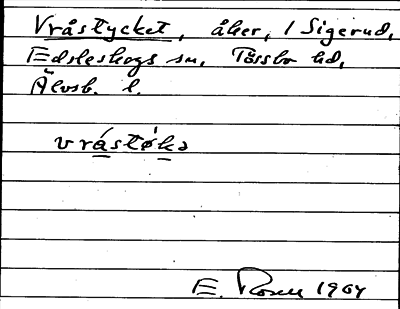 Vråstycket, åker, 1 Sigerud,
Edsleskogs sn, Tössbo hd,
Älvsb. l.
vråstøkə
E. Rosell 1964